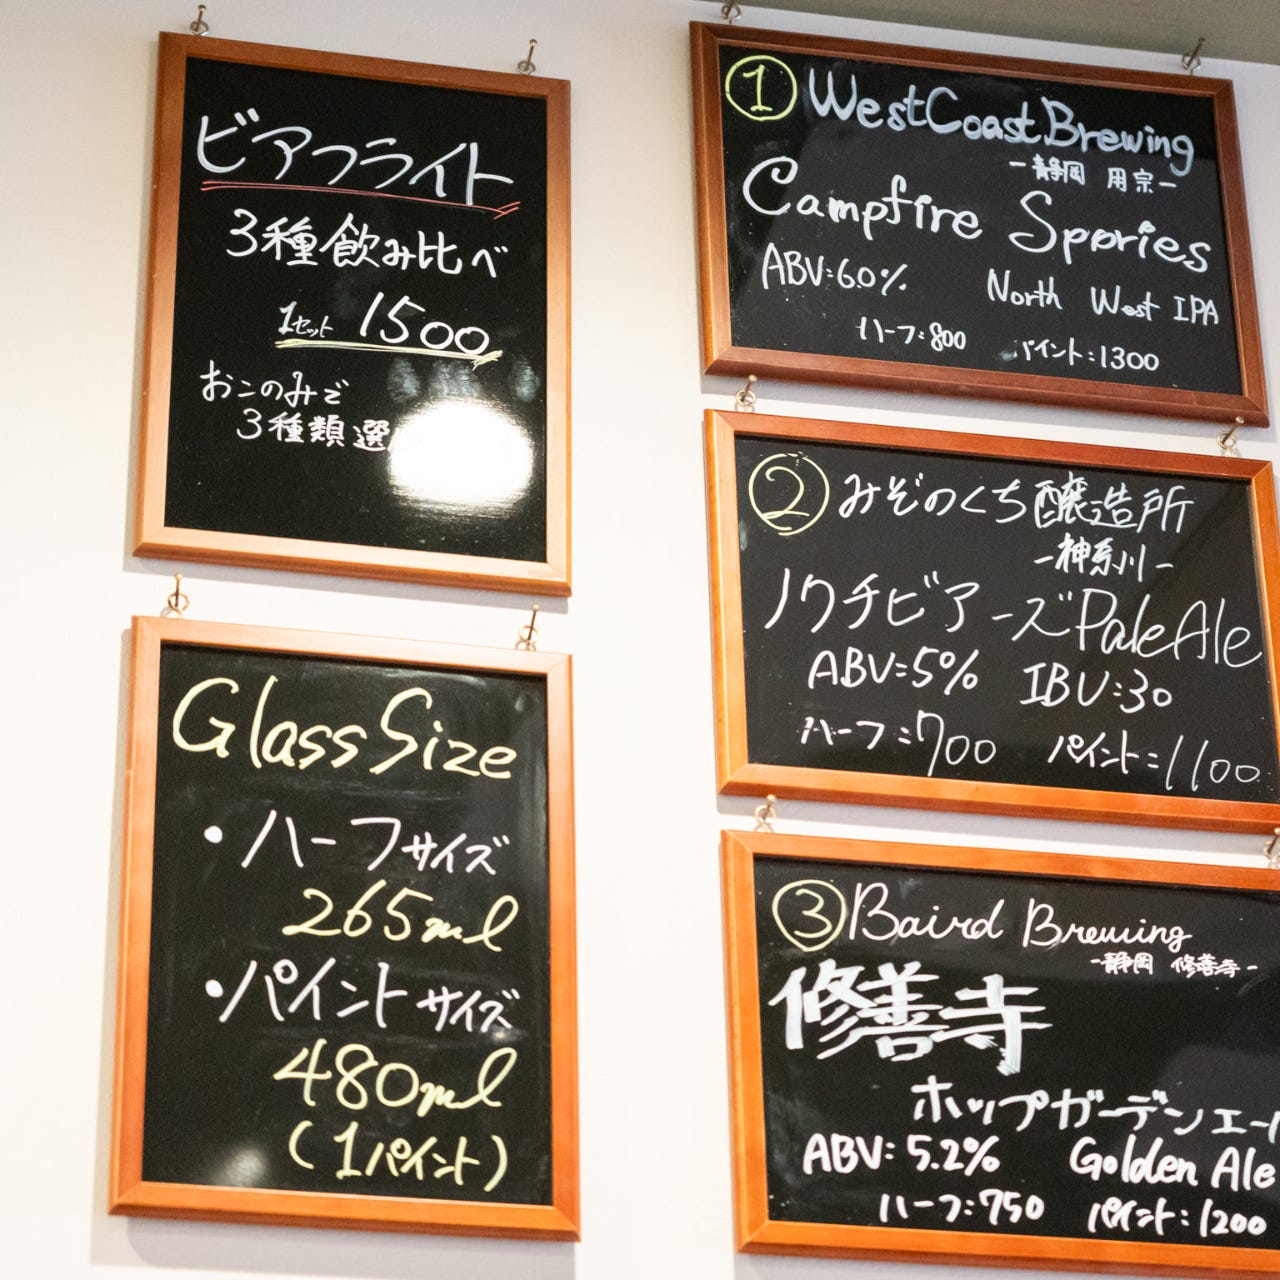 ビアフライト
3種飲み比べ
1セット 1500
おこのみで
3種類選
Glass Size
・ハーフサイズ
265ml
・パイントサイズ
480ml
(1パイント)
① West Coast Brewing
-静岡 用宗-
Campfire Spories
ABV:6.0% North West IPA
ハーフ:800 パイント:1300
② みぞのくち醸造所
-神奈川-
ノクチビアーズPale Ale
ABV:5% IBU:30
ハーフ:700 パイント:1100
③ Baird Brewing
-静岡 修善寺-
修善寺
ホップガーデンエー
ABV: 5.2% Golden Ale
ハーフ:750 パイント:1200